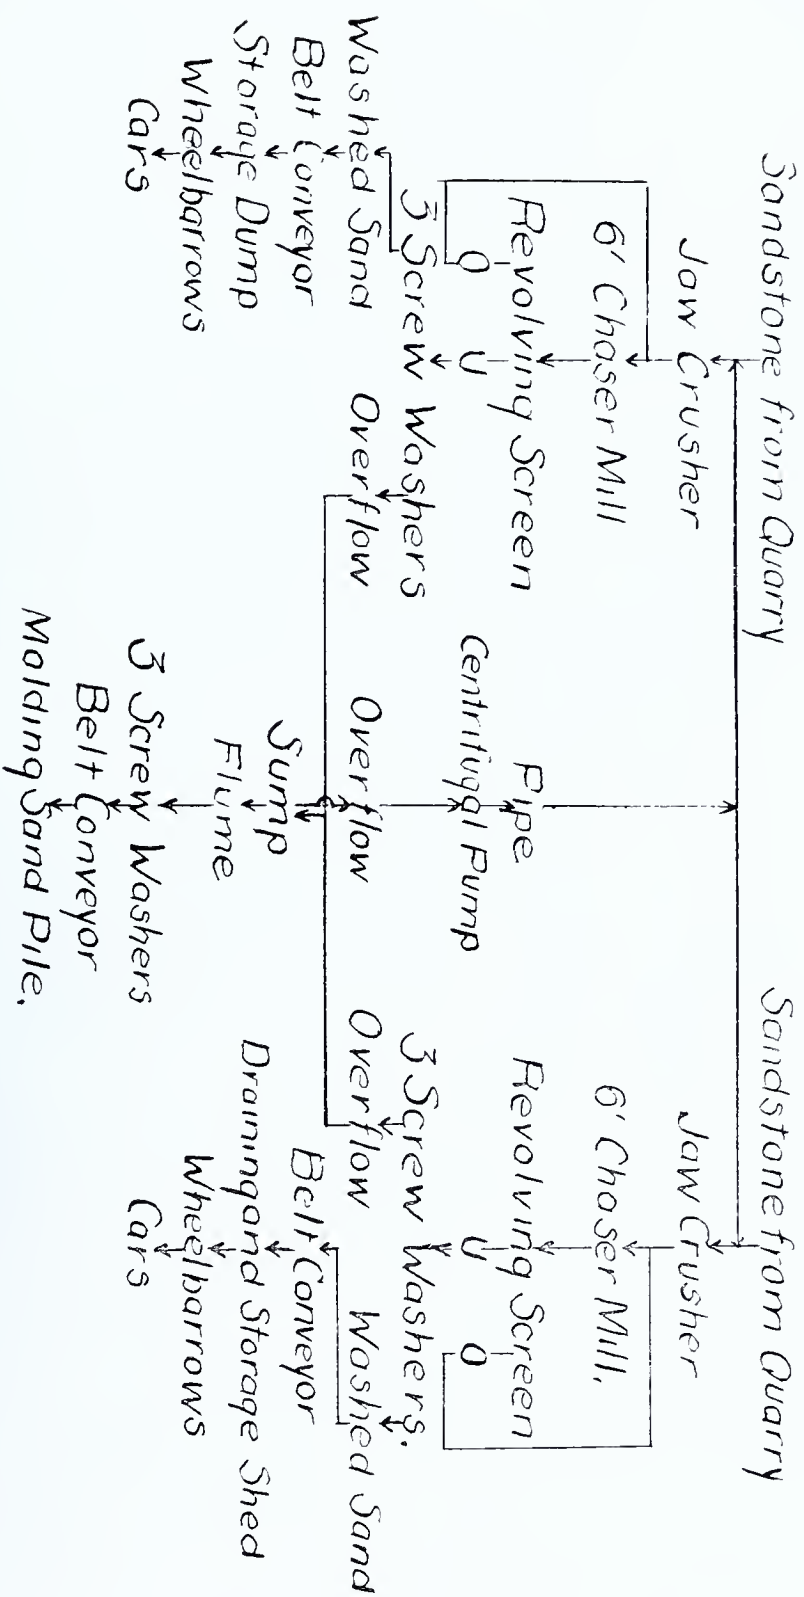 Sandstone from Quarry
Jaw Crusher
6' Chaser Mill
Revolving Screen
O U
3 Screw Washers
Washed Sand Overflow
Belt Conveyor
Storage Dump
Wheelbarrows
Cars
Pipe
Centrifugal Pump
Overflow
Sump
Flume
3 Screw Washers
Belt Conveyor
Molding Sand Pile.
Sandstone from Quarry
Jaw Crusher
6' Chaser Mill.
Revolving Screen
U O
3 Screw Washers.
Overflow Washed Sand
Belt Conveyor
Draining and Storage Shed
Wheelbarrows
Cars